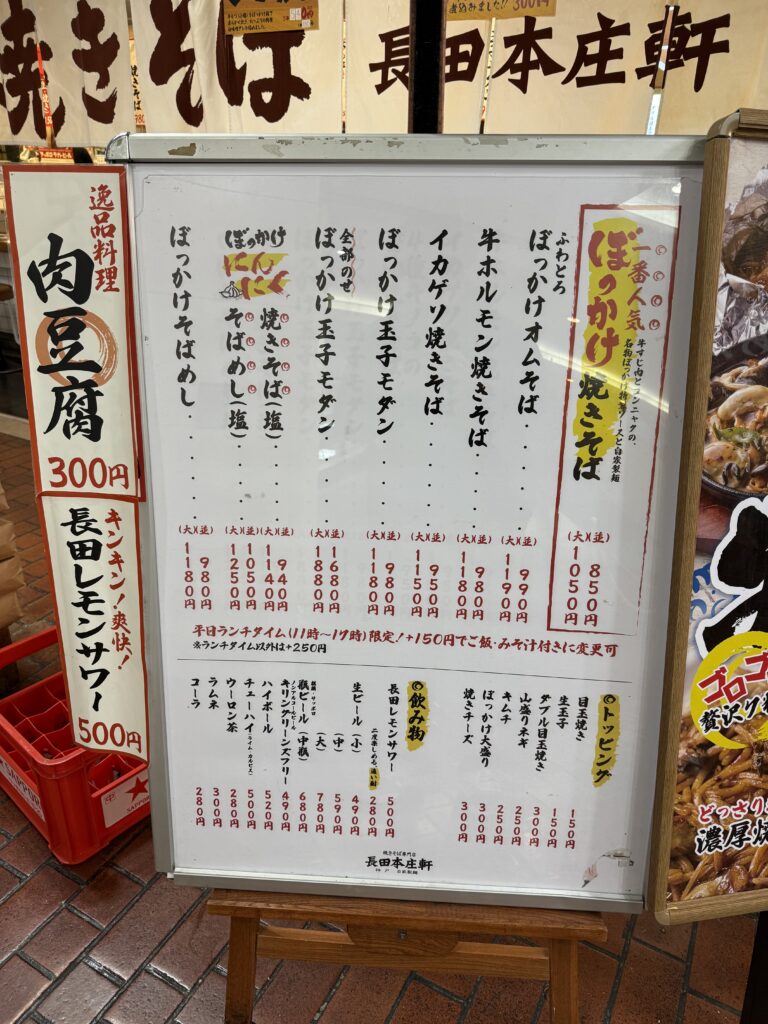 焼きそば
長田本庄軒
一番人気
ぼっかけ焼きそば
牛すじ肉とコンニャクの、
名物ぼっかけ特製ソースと自家製麺
(大)(並)
850円
1050円
ふわとろ
ぼっかけオムそば
(大)(並)
990円
1190円
牛ホルモン焼きそば
(大)(並)
980円
1180円
イカゲソ焼きそば
(大)(並)
950円
1150円
ぼっかけ玉子モダン
(大)(並)
980円
1180円
全部のせ
ぼっかけ玉子モダン
(大)(並)
1680円
1880円
ぼっかけ
にんにく
焼きそば(塩)
(大)(並)
940円
1140円
そばめし(塩)
(大)(並)
1050円
1250円
ぼっかけそばめし
(大)(並)
980円
1180円
平日ランチタイム(11時〜17時)限定!+150円でご飯・みそ汁付きに変更可
※ランチタイム以外は+250円
トッピング
目玉焼き 150円
生玉子 150円
ダブル目玉焼き 300円
山盛りネギ 250円
キムチ 250円
ぼっかけ大盛り 300円
焼きチーズ 300円
飲み物
長田レモンサワー 500円
二度楽しめる、追い酎 280円
生ビール(小) 490円
(中) 590円
(大) 780円
銘柄・サッポロ
瓶ビール(中瓶) 680円
ノンアルコールビール
キリングリーンズフリー 490円
ハイボール 520円
チューハイ(ライム カルピス) 500円
ウーロン茶 280円
ラムネ 300円
コーラ 280円
焼きそば専門店
長田本庄軒
神戸 自家製麺
逸品料理
肉豆腐
300円
キンキン!爽快!
長田レモンサワー
500円
SAPPORO
ゴロゴ
贅沢リ
どっさり
濃厚焼